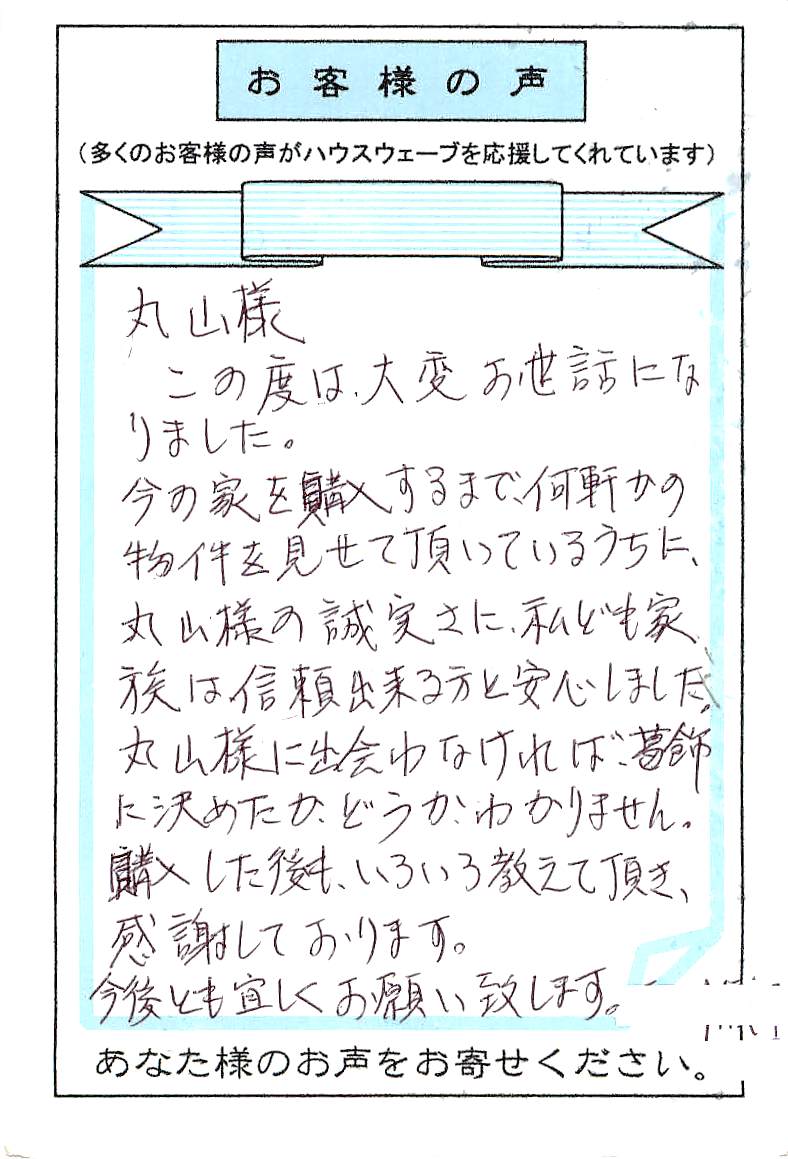 お客様の声
(多くのお客様の声がハウスウェーブを応援してくれています)
丸山様
この度は、大変お世話にな
りました。
今の家を購入するまで、何軒かの
物件を見せて頂いているうちに、
丸山様の誠実さに、私ども家
族は信頼出来る方と安心しました。
丸山様に出会わなければ、葛飾
に決めたか、どうか、わかりません。
購入した後も、いろいろ教えて頂き、
感謝しております。
今後とも宜しくお願い致します。
あなた様のお声をお寄せください。